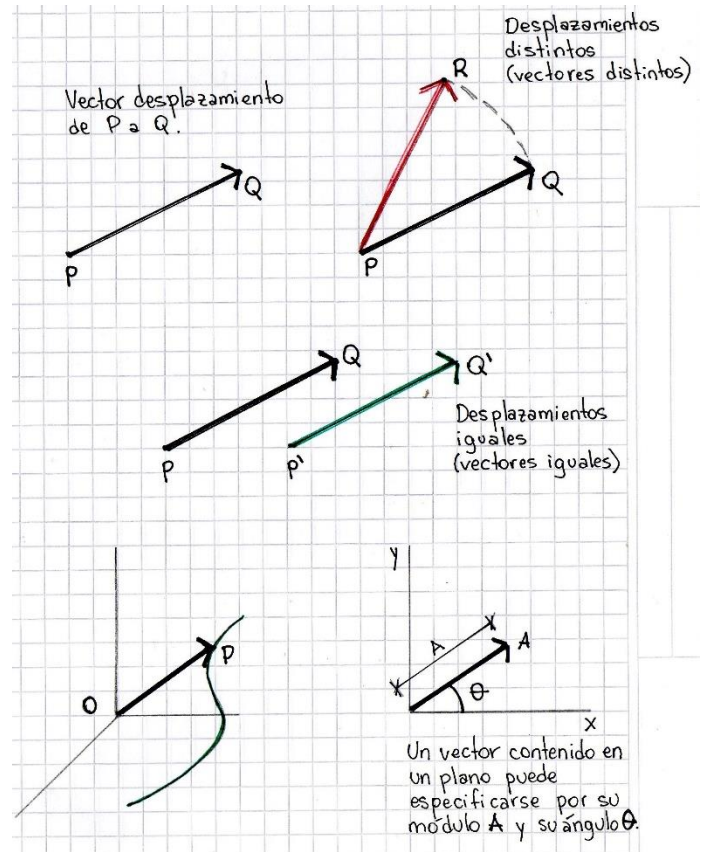 Vector desplazamiento
de P a Q.
P
Q
Desplazamientos
distintos
(vectores distintos)
R
Q
P
Q
P
Q'
P'
Desplazamientos
iguales
(vectores iguales)
O
P
y
A
A
θ
x
Un vector contenido en
un plano puede
especificarse por su
módulo A y su ángulo θ.